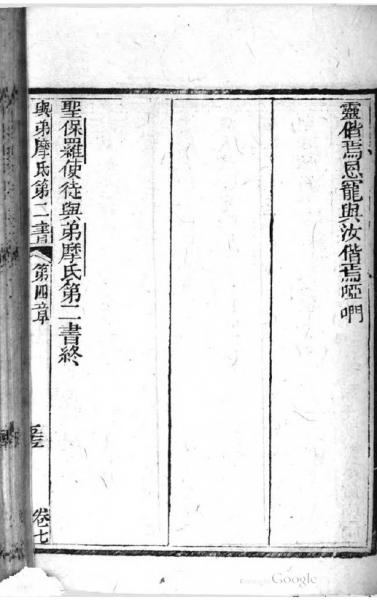 靈偕焉恩寵與汝偕焉啞們
聖保羅使徒與弟摩氏第二書終
與弟摩氏第二書
第四章
五
卷七
Google